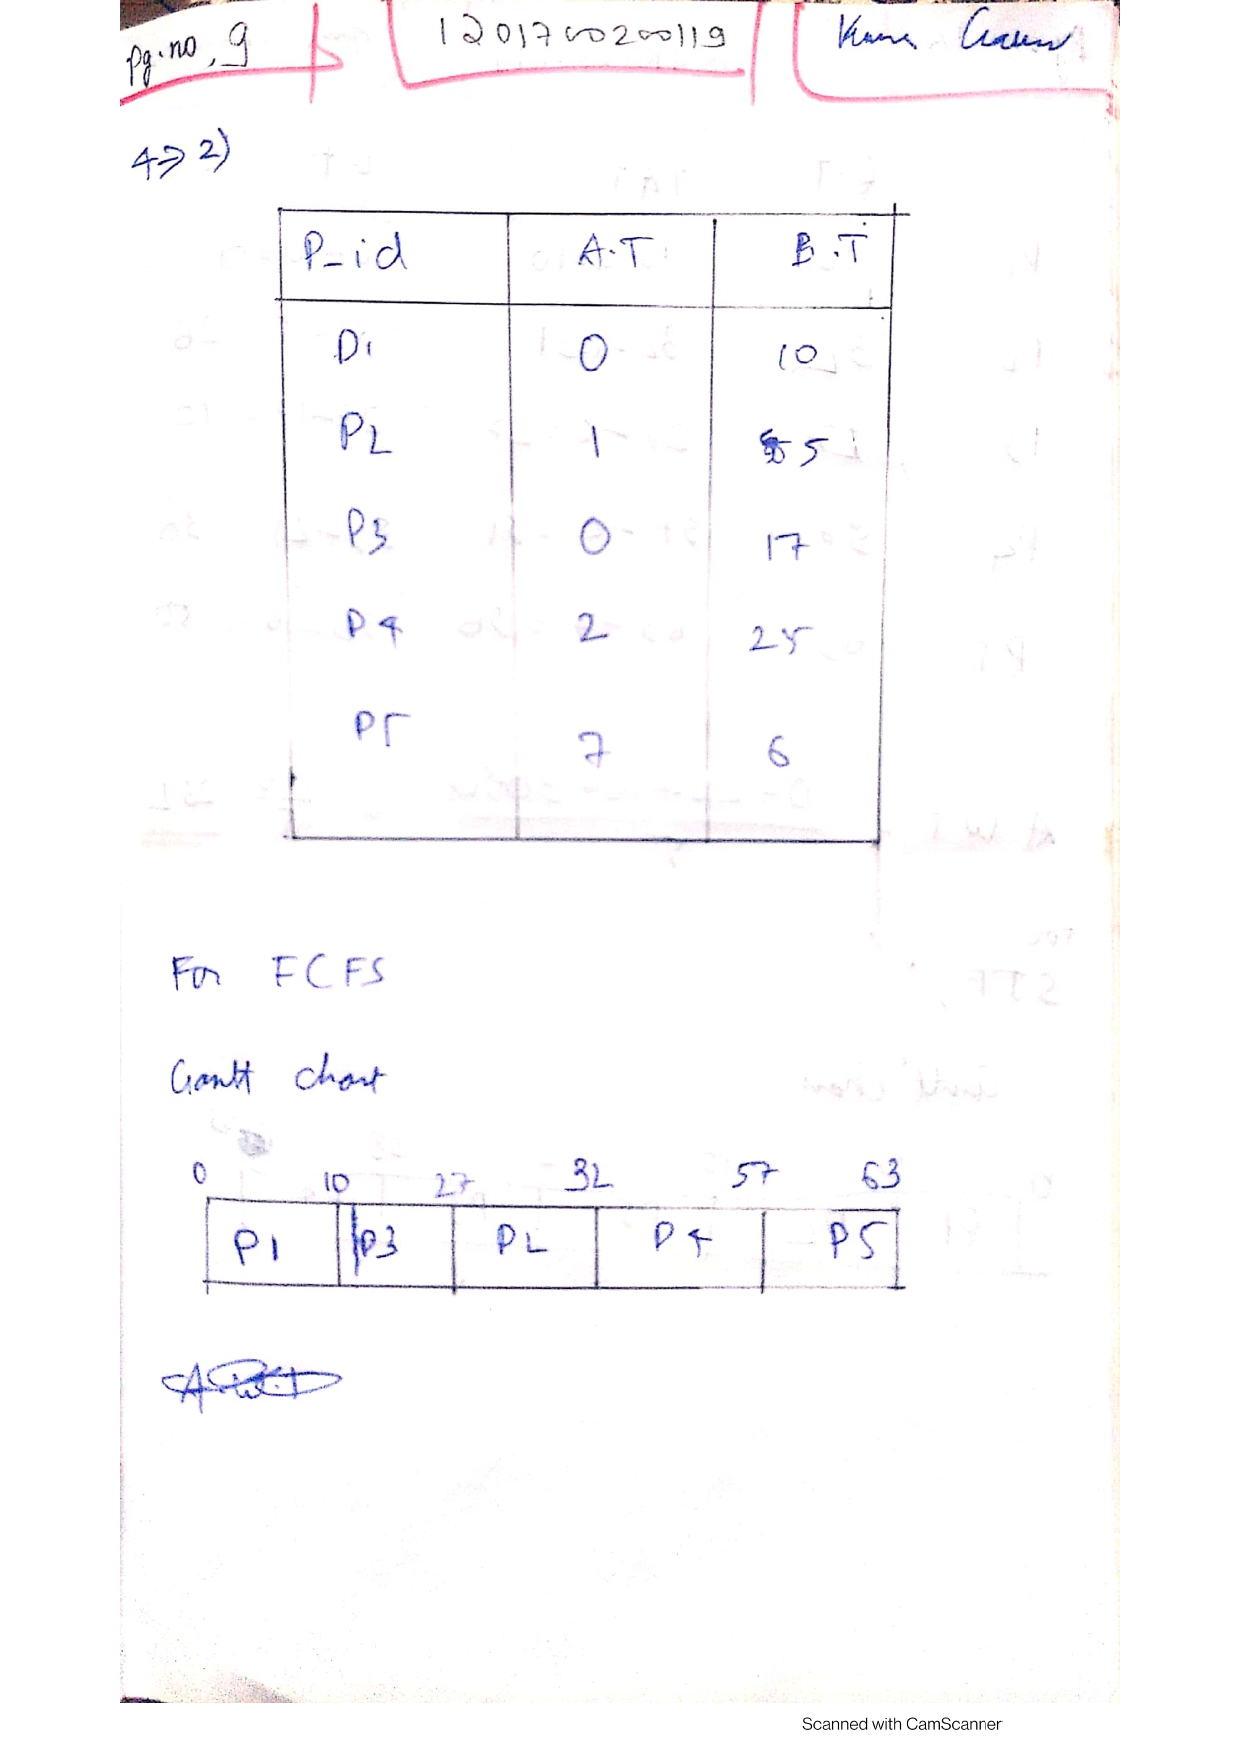 Pg.no, 9 1201700200119
4⇒ 2)
P_id A.T B.T
P1 0 10
P2 1 5
P3 0 17
P4 2 25
P5 7 6
For FCFS
Gantt chart
0 10 27 32 57 63
P1 P3 P2 P4 P5
Scanned with CamScanner